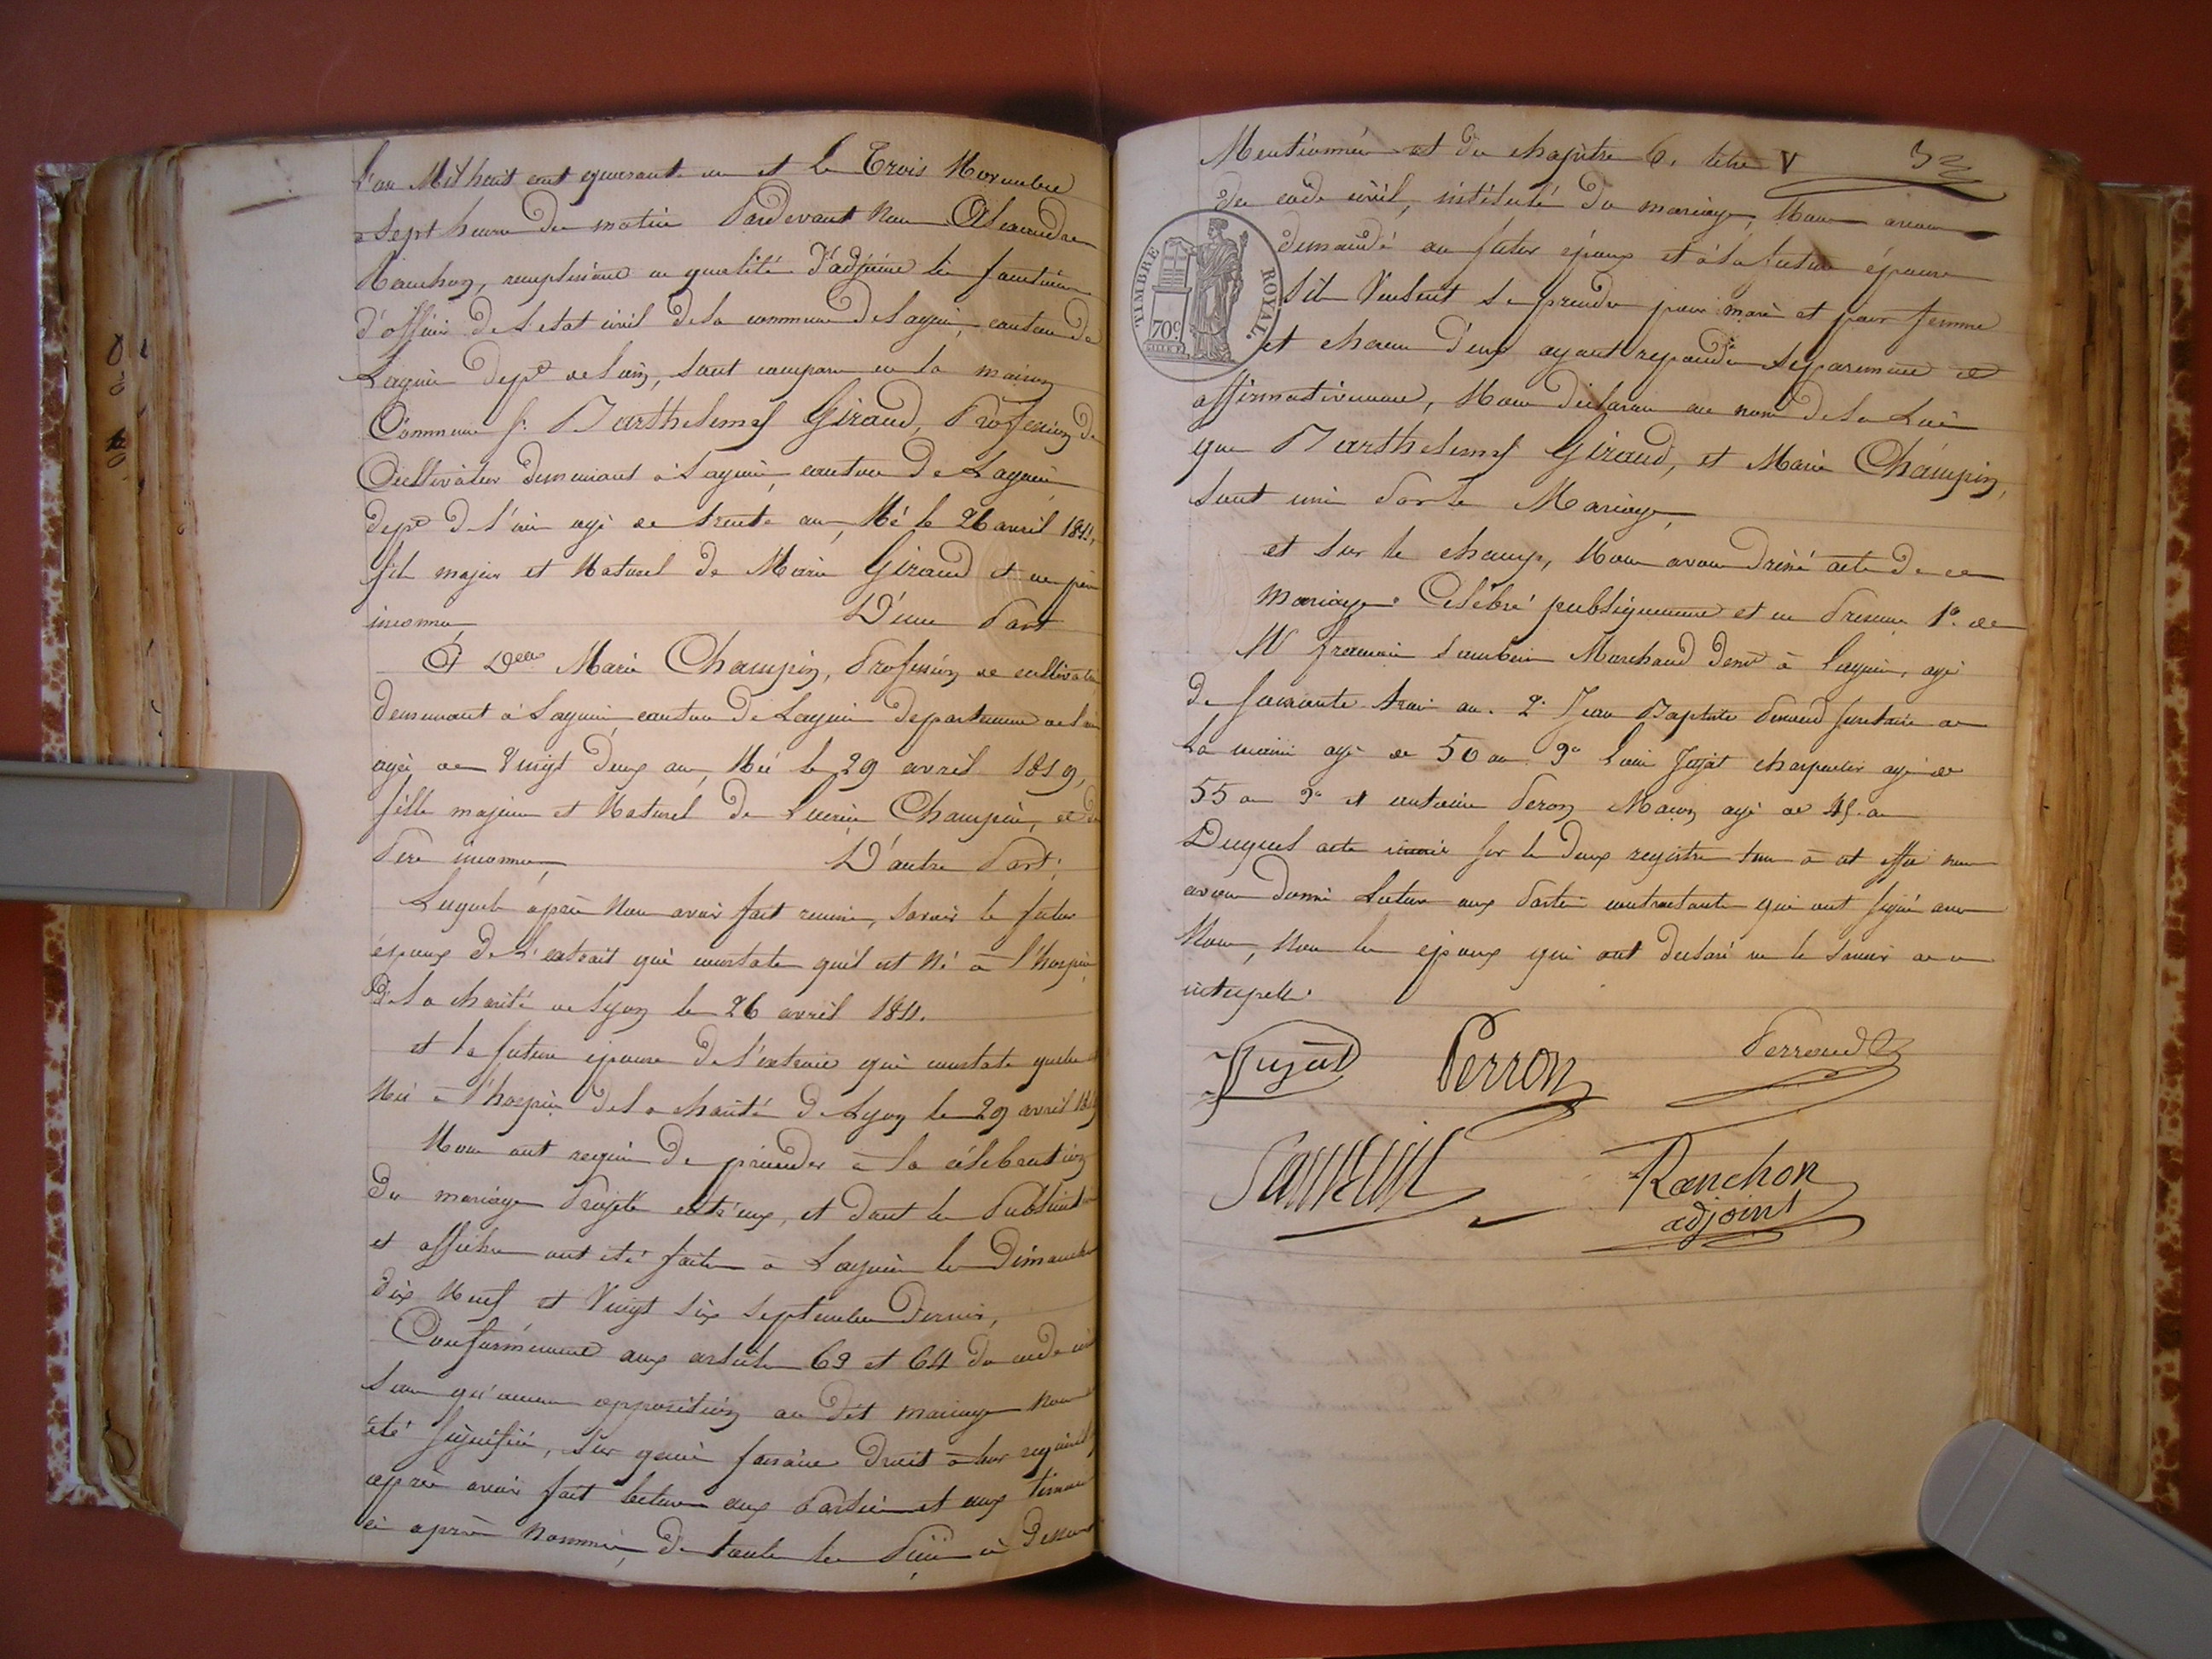 L'an Mil huit cent quarant un et le Trois Novembre
a Sept heure du matin Pardevant Nous Alexandre
Ranchon, remplissant en qualité d'adjoint les fonctions
d'officier de l'etat civil de la commune de Lagnieu, canton de
Lagnieu dept de l'ain, sont comparu en la maison
Commune Sr Barthelemy Giraud, Profession de
Cultivateur demeurant à Lagnieu, canton de Lagnieu
dept de l'ain agé de trente ans, Né le 26 avril 1811,
fils majeur et Naturel de Marie Giraud et un père
inconnu D'une Part
Et Delle Marie Champin, Profession de cultivatrice
demeurant à Lagnieu canton de Lagnieu departement de l'ain
agée de Vingt deux ans, Née le 29 avril 1819,
fille majeure et Naturel de Champin, et de
Père inconnu, D'autre Part;
Lequels après Nous avoir fait remise, Savoir le futur
époux de l'extrait qui constate qu'il est Né à l'hospice
De la charité de Lyon le 26 avril 1811.
et la future épouse de l'extrait qui constate quelle
Née à l'hospice de la charité de Lyon le 29 avril 1819
Nous ont requis de procéder à la célébration
du mariage Projeté entr'eux, et dont les Publications
et affiches ont été faites à Lagnieu les Dimanches
dix Neuf et Vingt Six Septembre Dernier,
Conformément aux articles 63 et 64 du code civil
Sans qu'aucune opposition au dit mariage nous
été Signifiée, Sur quoi faisant Droit à leur requisition
après avoir fait lecture aux Parties et aux témoins
ci après Nommés, de toutes les Pièces ci Dessus
Mentionnées et du chapitre 6. titre V 32
du code civil, intitulé du mariage, Nous avons
demandé au futur époux et à la future épouse
S'ils Veulent Se prendre pour mari et pour femme
et chacun d'eux ayant repondu Séparement et
affirmativement, Nous déclarons au nom de la Loi
que Barthelemy Giraud, et Marie Champin,
Sont unis Par le Mariage,
et Sur le champ, Nous avons Dressé acte de ce
mariage Célébré publiquement et en Présence 1o de
Mr francois Marchand demt à Lagnieu, agé
de Soixante trois ans. 2o Jean Baptiste Perroud Secretaire de
La mairie agé de 50 ans 3o Louis Jujat charpentier agé de
55 ans 3o et antoine Peron Maçon agé de 45 ans
Duquel acte inscrit Sur les deux registres tenu à cet effet nous
avons donné Lecture aux Parties contractantes qui ont Signé avec
Nous, Non les époux qui ont declaré ne le Savoir de ce
interpellé.
Jujat Perron Perroud
Ranchon
adjoint
TIMBRE ROYAL.
70c